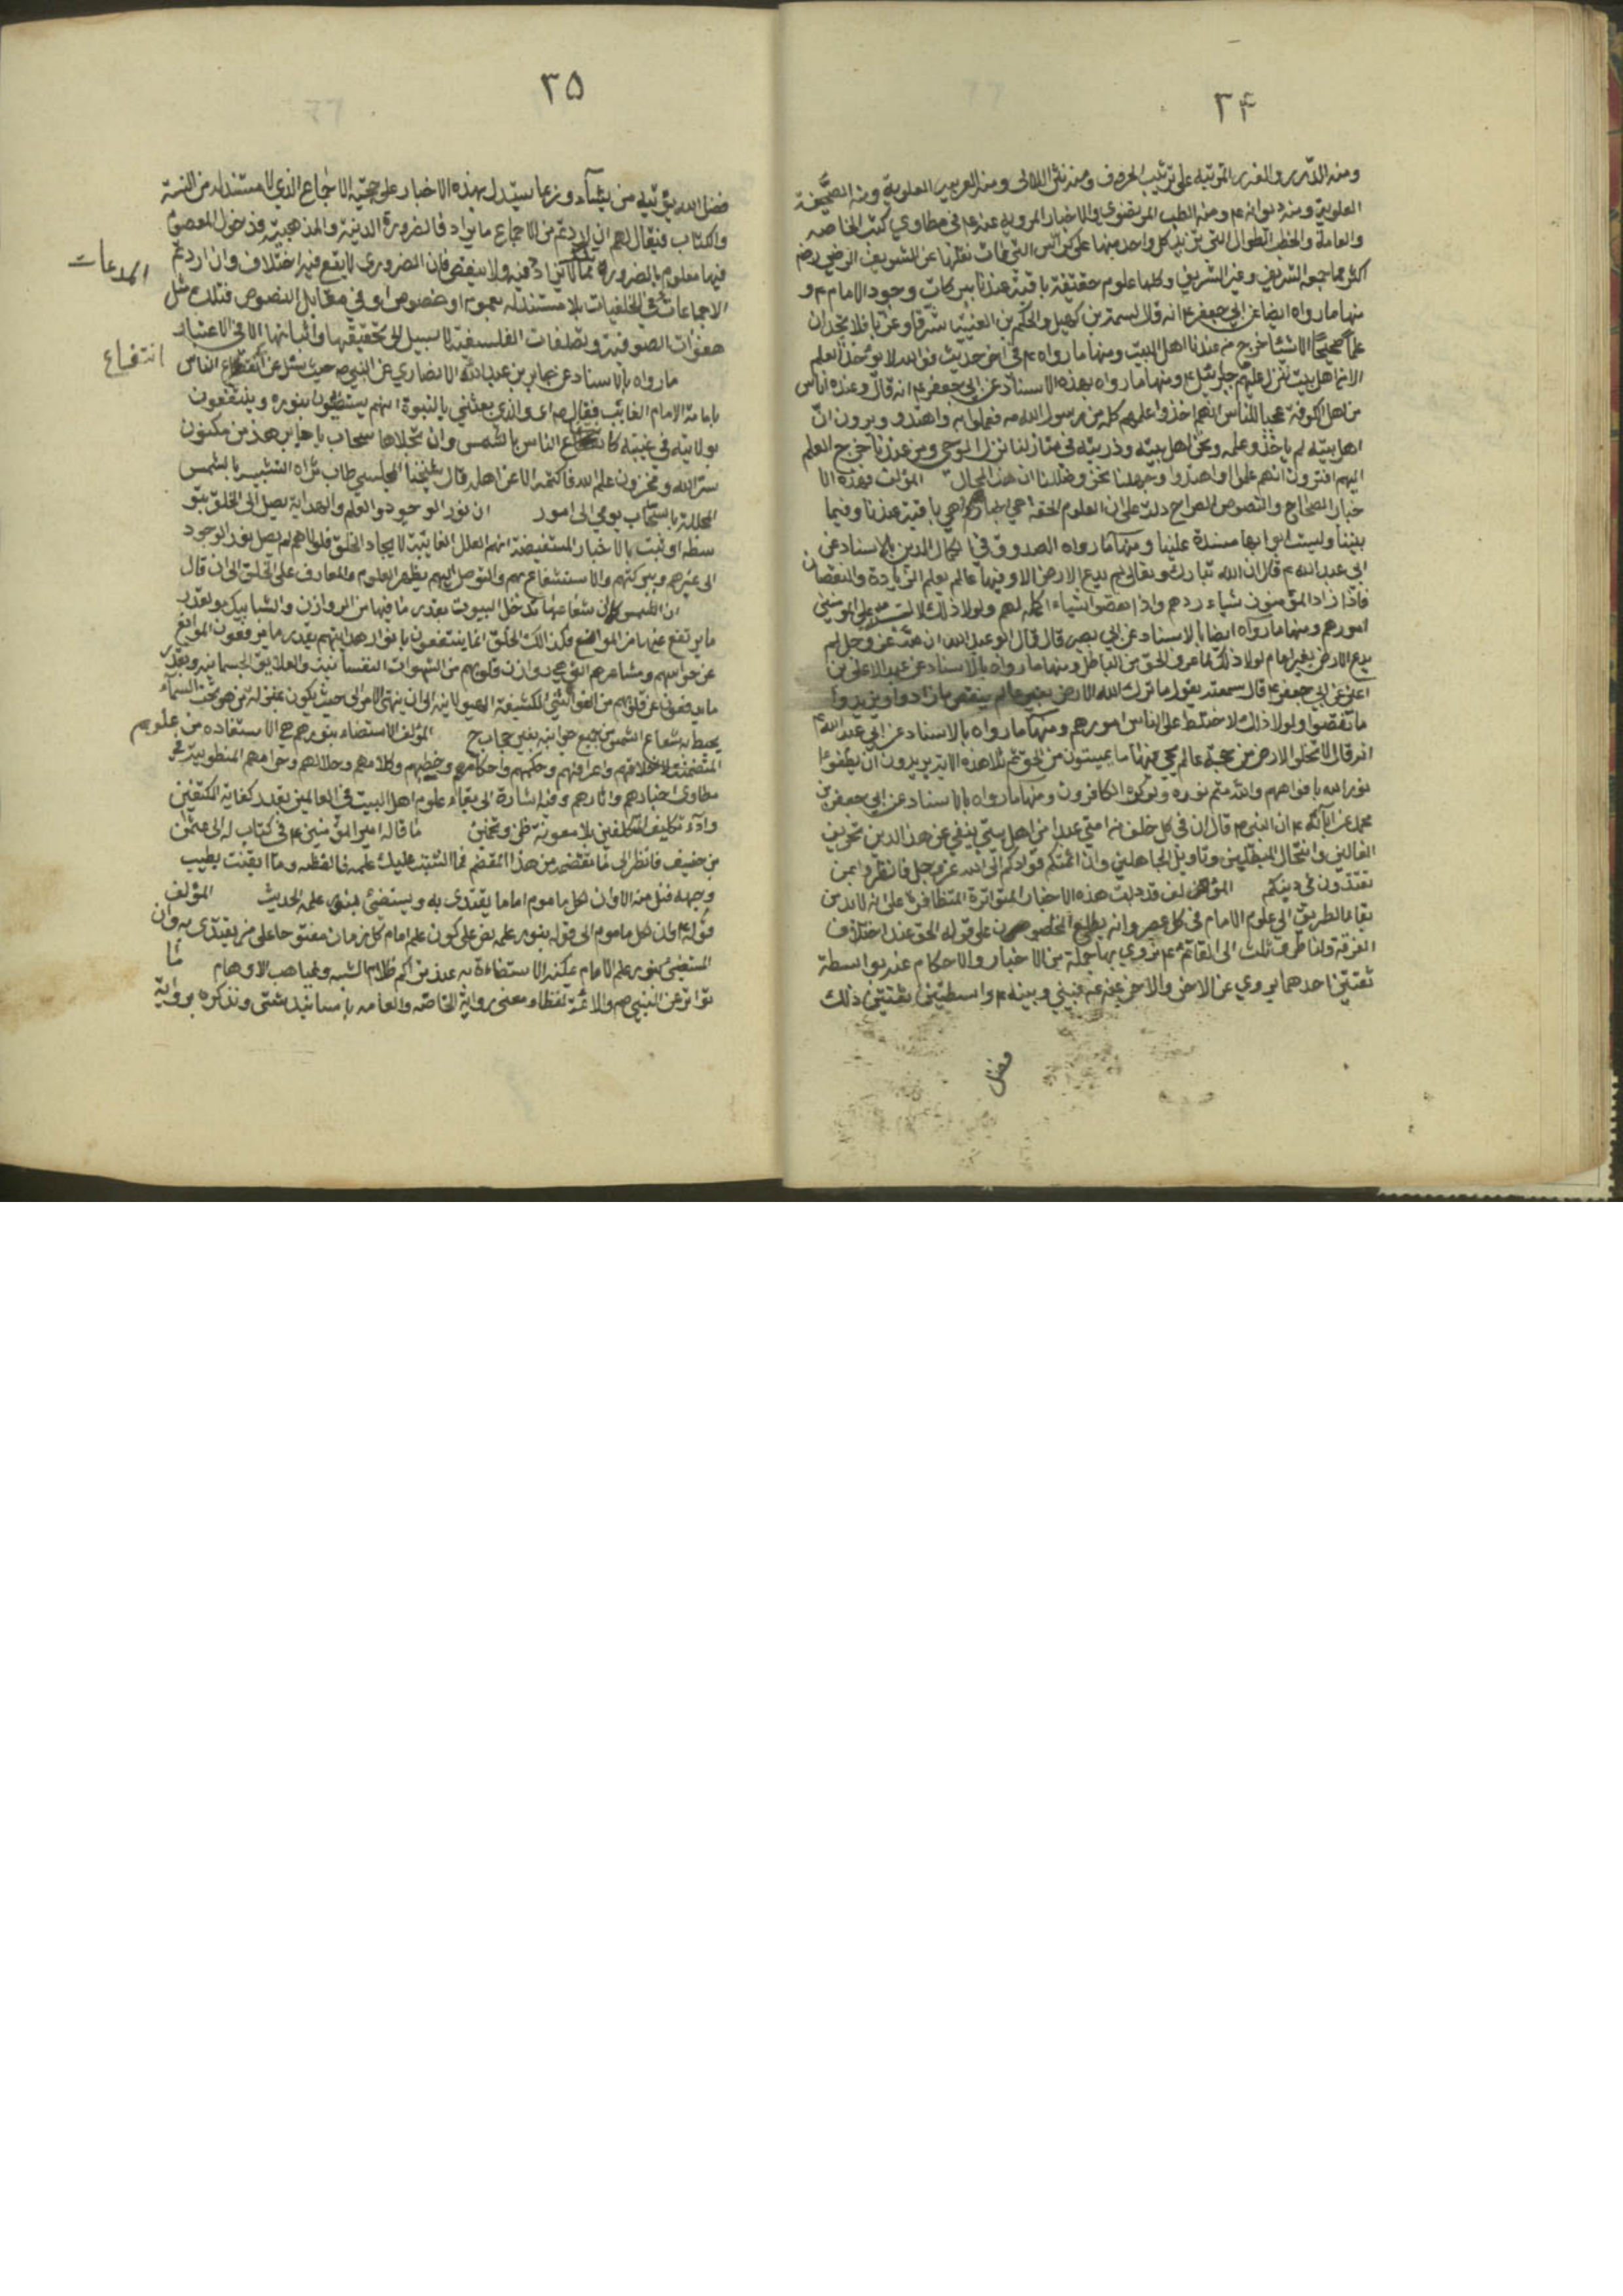 ٣۴
ومنه الدرر والغرر المرتبه على ترتيب الحروف ومنه نثر اللالى ومنه العلوية ومنه الصحيفة
العلوية ومنه ديوانه ع ومنه الطب المرتضوي والاخبار المرويه عنه ع في مطاوي كتب الخاصه
والعامة والخطب الطوال التي يزيد كل واحد منها على كراس التي نقلها عن الشريف الرضي رضه
اكثر مما جمعه الشريف وغير الشريف وكلها علوم حقيقة باقية عندنا ببركات وجود الامام ع و
منها ما رواه ايضا عن ابي جعفر ع انه قال لسلمة بن كهيل والحكم بن العتيبة شرقا وغربا فلا تجدان
علما صحيحا الا شيئا خرج من عندنا اهل البيت ومنها ما رواه ع في اخر حديث فوالله لا يوخذ العلم
الا من اهل بيت نزل عليهم جبرئيل ع ومنها ما رواه بهذه الاسناد عن ابي جعفر ع انه قال وعنده اناس
من اهل الكوفة عجبا للناس انهم اخذوا علمهم كله من رسول الله ص فعملوا به واهتدوا ويرون ان
اهل بيته لم ياخذوا علمه ونحن اهل بيته وذريته في منازلنا نزل الوحي ومن عندنا خرج العلم
اليهم افترون انهم علموا واهتدوا وجهلنا نحن وضللنا ان هذا لمحال المؤلف فهذه الا
خبار الصحاح والنصوص الصراح دلت على ان العلوم الحقه هي باقية عندنا وفيما
بيننا وليست ابوابها مسندة علينا ومنها ما رواه الصدوق في اكمال الدين بالاسناد عن
ابي عبد الله ع قال ان الله تبارك وتعالى لم يدع الارض الا وفيها عالم يعلم الزيادة والنقصان
فاذا زاد المؤمنون شياء ردهم واذا نقصوا شياء اكمله لهم ولولا ذلك لا على المومنين
امورهم ومنها ما رواه ايضا بالاسناد عن ابي بصير قال قال ابو عبد الله ان الله عز وجل لم
يدع الارض بغير امام لولا ذلك لما عرف الحق من الباطل ومنها ما رواه بالاسناد عن عبد الاعلى بن
اعين عن ابي جعفر ع قال سمعته يقول ما ترك الله الارض بغير عالم ينقص ما زادوا ويزيد وا
ما نقصوا ولولا ذلك لاختلط على الناس امورهم ومنها ما رواه بالاسناد عن ابي عبد الله ع
انه قال لا تخلى الارض من حجة عالم يحيي فيها ما يميتون من الحق ثم تلا هذه الاية يريدون ان يطفوا
نور الله بافواههم والله متم نوره ولو كره الكافرون ومنها ما رواه بالاسناد عن ابي جعفر بن
محمد عن ابائه ع ان النبي ص قال ان في كل خلف من امتي عدلا من اهل بيتي ينفي عن هذا الدين تحريف
الغالين وانتحال المبطلين وتاويل الجاهلين وان ائمتكم قوادكم الى الله عز وجل فانظروا بمن
تقتدون في دينكم المؤلف قد دلت هذه الاخبار المتواترة المتظافرة على انه لابد من
بقاء الطريق الى علوم الامام في كل عصر وانه على قوله الحق عند اختلاف
الفرقة ولنا طرق ثلث الى القائم ع نروي بها جملة من الاخبار والاحكام عنه بواسطة
ثقتين احدهما يروي عن الاخر والاخر عنه ع فبيني وبينه ع واسطتين ثقتين ذلك
فضل
٣۵
فضل الله يؤتيه من يشآء وربما يستدل بهذه الاخبار على حجية الاجماع الذي لا مستند له من السنة
والكتاب فيقال لهم ان اردتم من الاجماع ما يرادف الضرورة الدينية والمذهبية فدخول المعصوم
فيها معلوم بالضرورة فيه ولا ينقص فان الضروري لا يقع فيه اختلاف وان اردتم
المدعات
الاجماعات في الخلفيات بلا مستند له بعموم او خصوص او في مقابل النصوص فتلك مثل
هفوات الصوفية وتصلفات الفلسفة لا سبيل الى تحقيقها واثباتها الا في الاعتبار
ما رواه بالاسناد عن جابر بن عبد الله الانصاري عن النبي ص حيث سئل عن الناس
انتفاع
بامامة الامام الغائب فقال ص اى والذي بعثني بالنبوة انهم يستضيئون بنوره وينتفعون
بولايته في غيبته كانتفاع الناس بالشمس وان تجلاها سحاب يا جابر هذا من مكنون
سر الله ومخزون علم الله فاكتمه الا عن اهله قال شيخنا المجلسي طاب ثراه التشبيه بالشمس
المجللة بالسحاب يومي الى امور ان نور الوجود والعلم والهداية يصل الى الخلق بتو
سطه اذ ثبت بالاخبار المستفيضة انهم العلل الغائية لايجاد الخلق فلولاهم لم يصل نور الوجود
الى غيرهم وببركتهم والاستشفاع بهم والتوصل اليهم يظهر العلوم والمعارف على الخلق الى ان قال
ان الشمس كما ان شعاعها تدخل البيوت بقدر ما فيها من الروازن والشبابيك وبقدر
ما يرتفع عنها من الموانع فكذالك الخلق انما ينتفعون بانوار هدايتهم بقدر ما يرفعون الموانع
عن حواسهم ومشاعرهم التي هي روازن قلوبهم من الشهوات النفسانية والعلايق الجسمانية وبقدر
ما يدفعون عن قلوبهم من الغواشي الكثيفة الهيولانية الى ان ينتهي الامر الى حيث يكون بمنزلة من هو تحت السماء
يحيط به شعاع الشمس من جميع جوانبه بغير حجاب ح المؤلف الاستضاء بنورهم هي الاستفاده من علومهم
المتضمنة لاخلاقهم واعرافهم وحكمهم واحكامهم وخطبهم وكلامهم وحلالهم وحرامهم المنطوية في
مطاوي اخبارهم واثارهم وفيه اشارة الى بقاء علوم اهل البيت في العالمين بقدر كفاية المكلفين
واداء تكليف المكلفين بلا معونة ظن وتخمين ما قاله امير المؤمنين ع في كتاب له الى عثمن
بن حنيف فانظر الى ما تقضمه من هذا المقضم فما اشتبه عليك علمه فالفظه وما ايقنت بطيب
وجهه فنل منه الا وان لكل ماموم اماما يقتدى به ويستضئ بنور علمه الحديث المؤلف
قوله ع الا وان لكل ماموم الى قوله بنور علمه نص على كون علم امام كل زمان مفتوحا على من يقتدى به وان
المستضئ بنور علم الامام يمكنه الاستضاءة به عند تراكم ظلام الشبه وغياهب الاوهام ما
تواتر عن النبي ص والائمة لفظا ومعنى رواية الخاصه والعامه باسانيد شتى ونذكره برواية